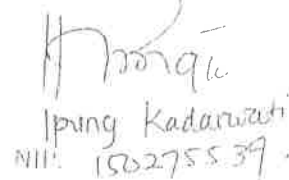 Ipung Kadarwati
NII: 150275539.